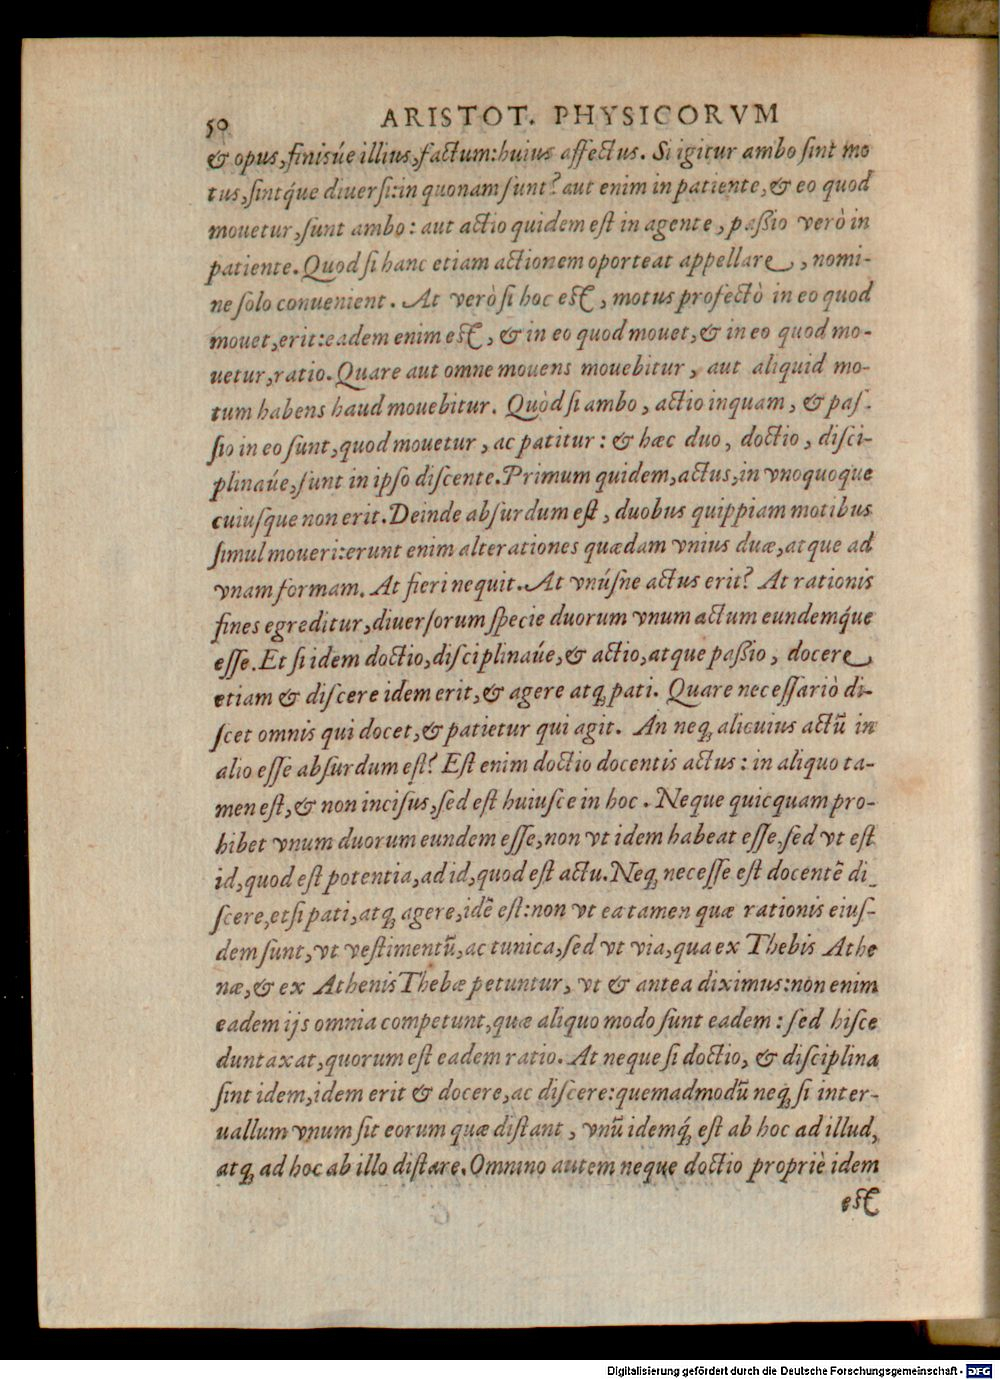 50 ARISTOT. PHYSICORVM
& opus, finisúe illius, factum: huius affectus. Si igitur ambo sint mo
tus, sintq́ue diuersi: in quonam sunt? aut enim in patiente, & eo quod
mouetur, sunt ambo: aut actio quidem est in agente, passio verò in
patiente. Quod si hanc etiam actionem oporteat appellare, nomi-
ne solo conuenient. At verò si hoc est, motus profectò in eo quod
mouet, erit: eadem enim est, & in eo quod mouet, & in eo quod mo-
uetur, ratio. Quare aut omne mouens mouebitur, aut aliquid mo-
tum habens haud mouebitur. Quòd si ambo, actio inquam, & pas-
sio in eo sunt, quod mouetur, ac patitur: & hæc duo, doctio, disci-
plinaúe, sunt in ipso discente. Primum quidem, actus, in vnoquoque
cuiusque non erit. Deinde absurdum est, duobus quippiam motibus
simul moueri: erunt enim alterationes quædam vnius duæ, atque ad
vnam formam. At fieri nequit. At vnúsne actus erit? At rationis
fines egreditur, diuersorum specie duorum vnum actum eundemq́ue
esse. Et si idem doctio, disciplinaúe, & actio, atque passio, docere
etiam & discere idem erit, & agere atq; pati. Quare necessariò di-
scet omnis qui docet, & patietur qui agit. An neq; alicuius actū in
alio esse absurdum est? Est enim doctio docentis actus: in aliquo ta-
men est, & non incisus, sed est huiusce in hoc. Neque quicquam pro-
hibet vnum duorum eundem esse, non vt idem habeat esse, sed vt est
id, quod est potentia, ad id, quod est actu. Neq; necesse est docentē di_
scere, etsi pati, atq; agere, idē est: non vt ea tamen quæ rationis eius-
dem sunt, vt vestimentū, ac tunica, sed vt via, qua ex Thebis Athe
næ, & ex Athenis Thebæ petuntur, vt & antea diximus: non enim
eadem ijs omnia competunt, quæ aliquo modo sunt eadem: sed hisce
duntaxat, quorum est eadem ratio. At neque si doctio, & disciplina
sint idem, idem erit & docere, ac discere: quemadmodū neq; si inter-
uallum vnum sit eorum quæ distant, vnū idemq́; est ab hoc ad illud,
atq; ad hoc ab illo distare. Omnino autem neque doctio propriè idem
est
Digitalisierung gefördert durch die Deutsche Forschungsgemeinschaft - DFG